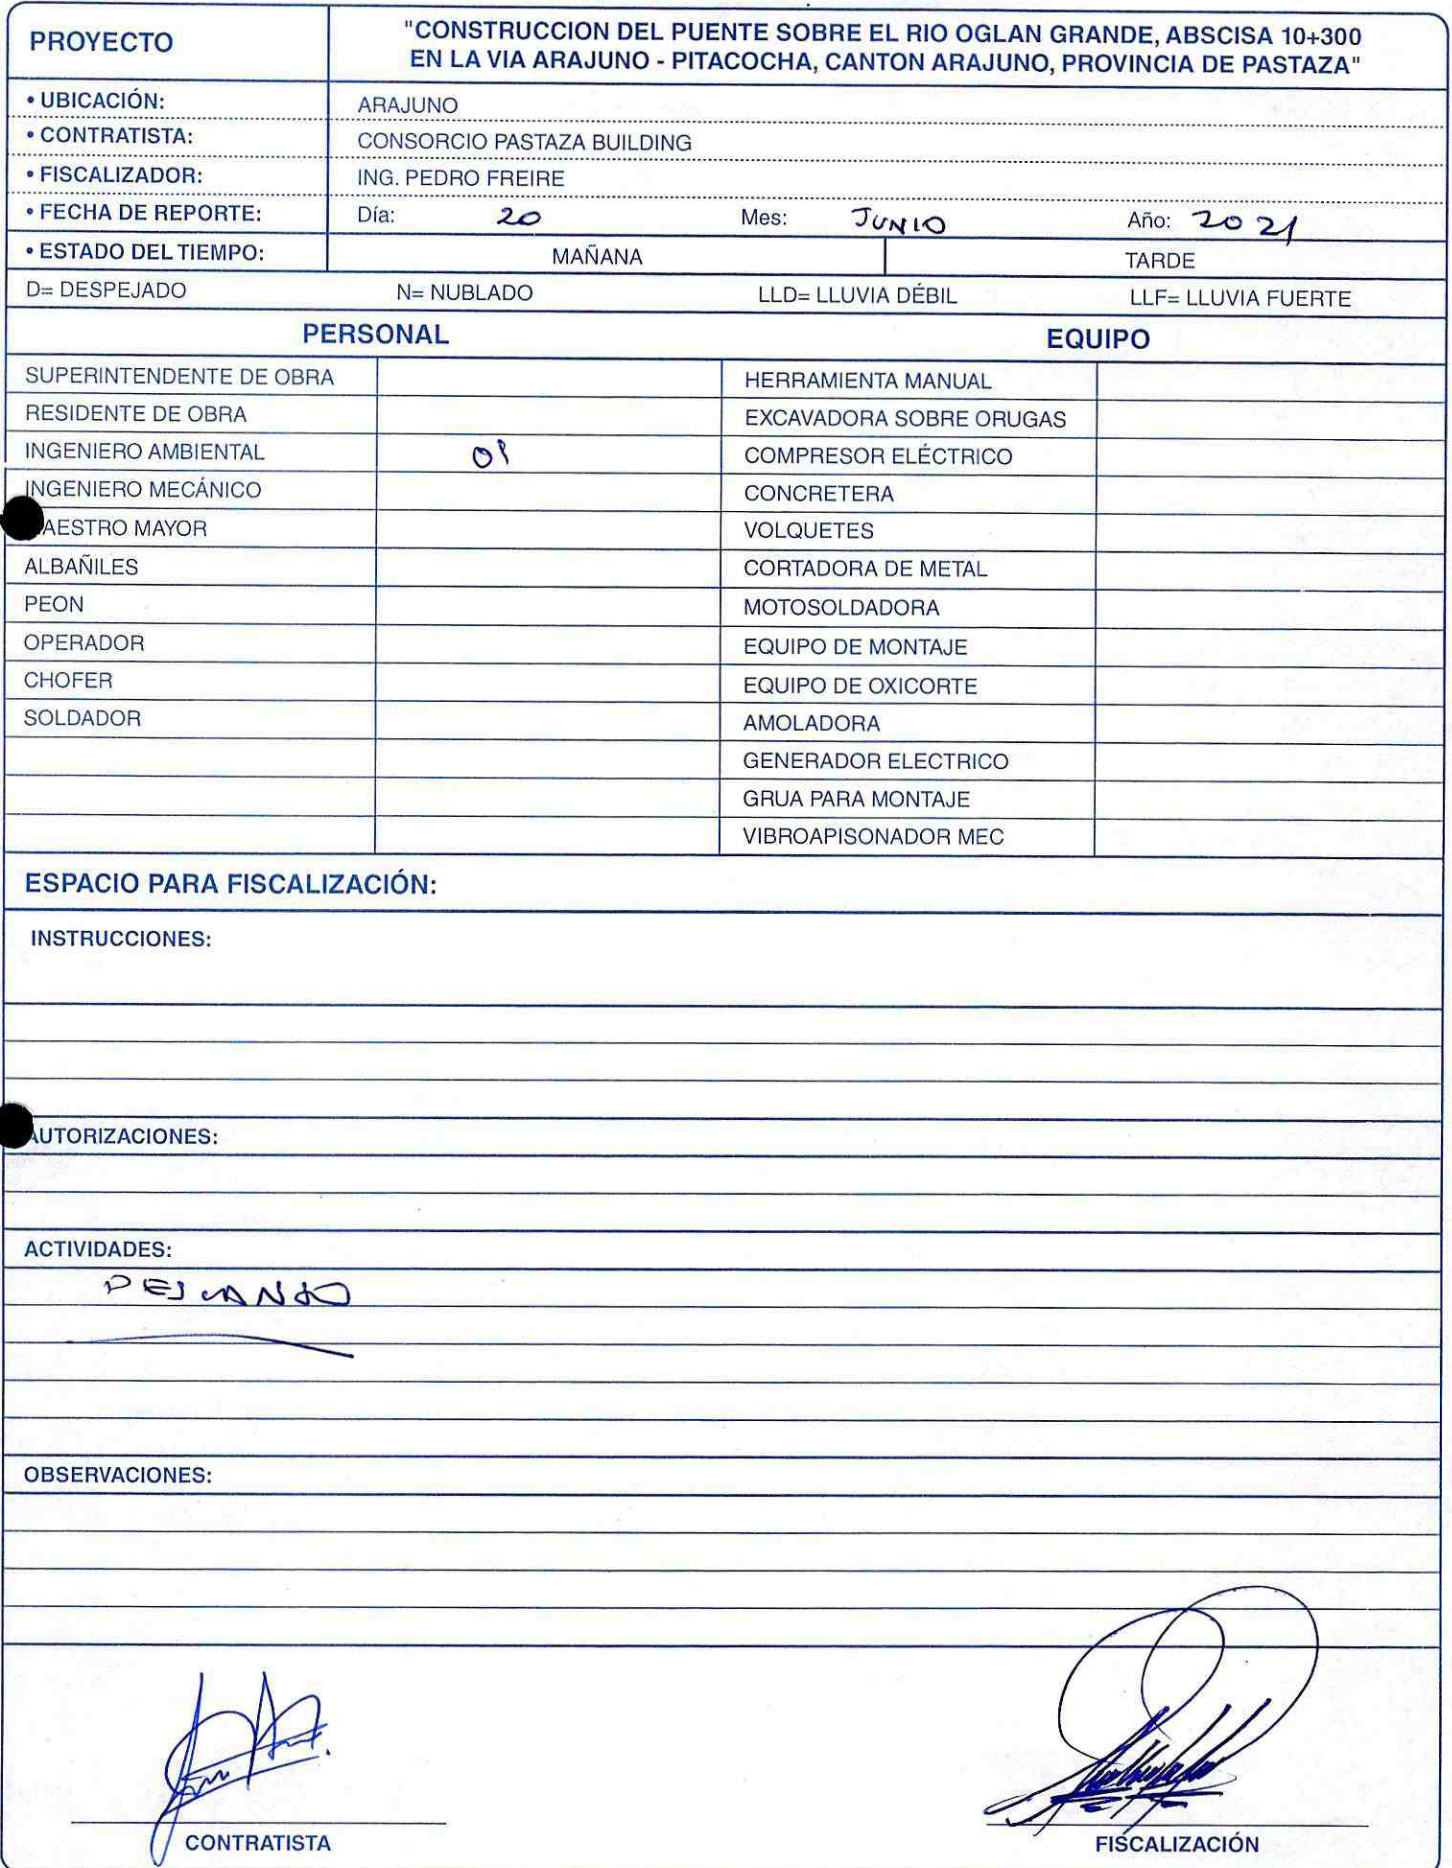 PROYECTO
"CONSTRUCCION DEL PUENTE SOBRE EL RIO OGLAN GRANDE, ABSCISA 10+300
EN LA VIA ARAJUNO - PITACOCHA, CANTON ARAJUNO, PROVINCIA DE PASTAZA"
• UBICACIÓN: ARAJUNO
• CONTRATISTA: CONSORCIO PASTAZA BUILDING
• FISCALIZADOR: ING. PEDRO FREIRE
• FECHA DE REPORTE: Día: 20 Mes: JUNIO Año: 2021
• ESTADO DEL TIEMPO: MAÑANA TARDE
D= DESPEJADO N= NUBLADO LLD= LLUVIA DÉBIL LLF= LLUVIA FUERTE
PERSONAL EQUIPO
SUPERINTENDENTE DE OBRA HERRAMIENTA MANUAL
RESIDENTE DE OBRA EXCAVADORA SOBRE ORUGAS
INGENIERO AMBIENTAL 01 COMPRESOR ELÉCTRICO
INGENIERO MECÁNICO CONCRETERA
AESTRO MAYOR VOLQUETES
ALBAÑILES CORTADORA DE METAL
PEON MOTOSOLDADORA
OPERADOR EQUIPO DE MONTAJE
CHOFER EQUIPO DE OXICORTE
SOLDADOR AMOLADORA
GENERADOR ELECTRICO
GRUA PARA MONTAJE
VIBROAPISONADOR MEC
ESPACIO PARA FISCALIZACIÓN:
INSTRUCCIONES:
AUTORIZACIONES:
ACTIVIDADES:
DESCANSO
OBSERVACIONES:
CONTRATISTA FISCALIZACIÓN